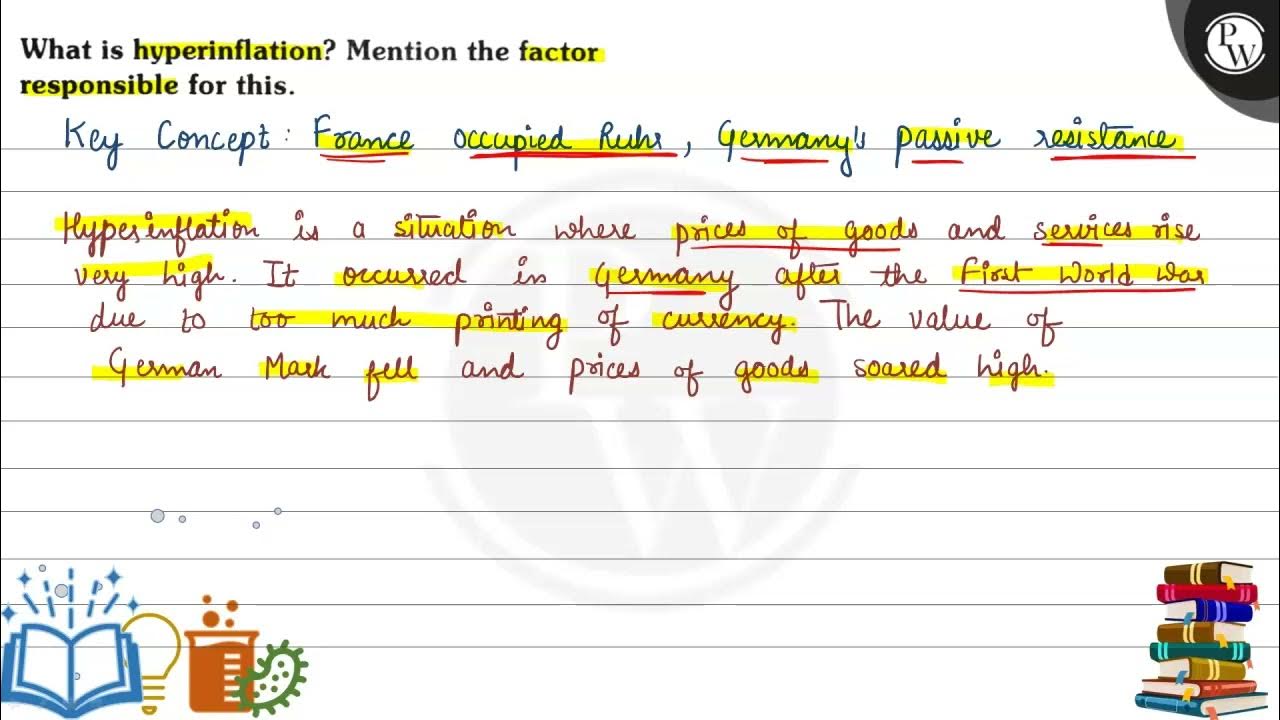 What is hyperinflation? Mention the factor
responsible for this.
PW
Key Concept: France occupied Ruhr, Germany's passive resistance
Hyperinflation is a situation where prices of goods and services rise
very high. It occurred in Germany after the First World War
due to too much printing of currency. The value of
German Mark fell and prices of goods soared high.
PW